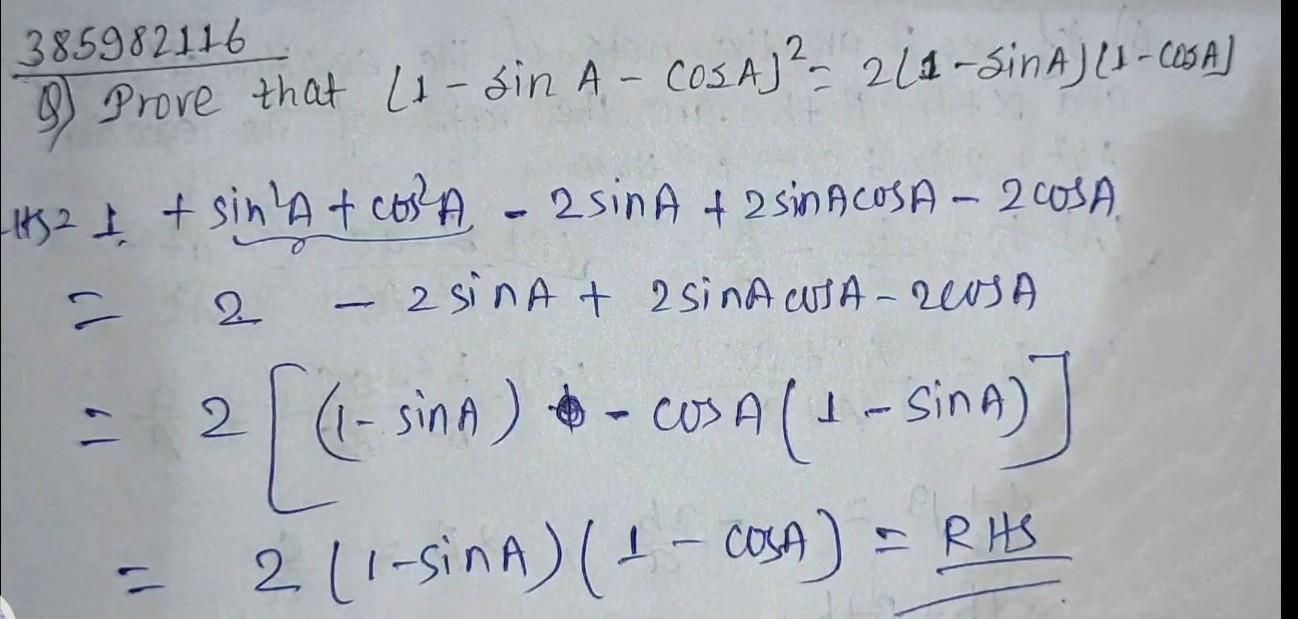 385982116
Q) Prove that (1 - sin A - cosA)² = 2(1 - sinA)(1 - cosA)
LHS = 1 + sin²A + cos²A - 2 sinA + 2 sinA cosA - 2 cosA
= 2 - 2 sinA + 2 sinA cosA - 2 cosA
= 2 [(1 - sinA) - cosA (1 - sinA)]
= 2 (1 - sinA) (1 - cosA) = RHS